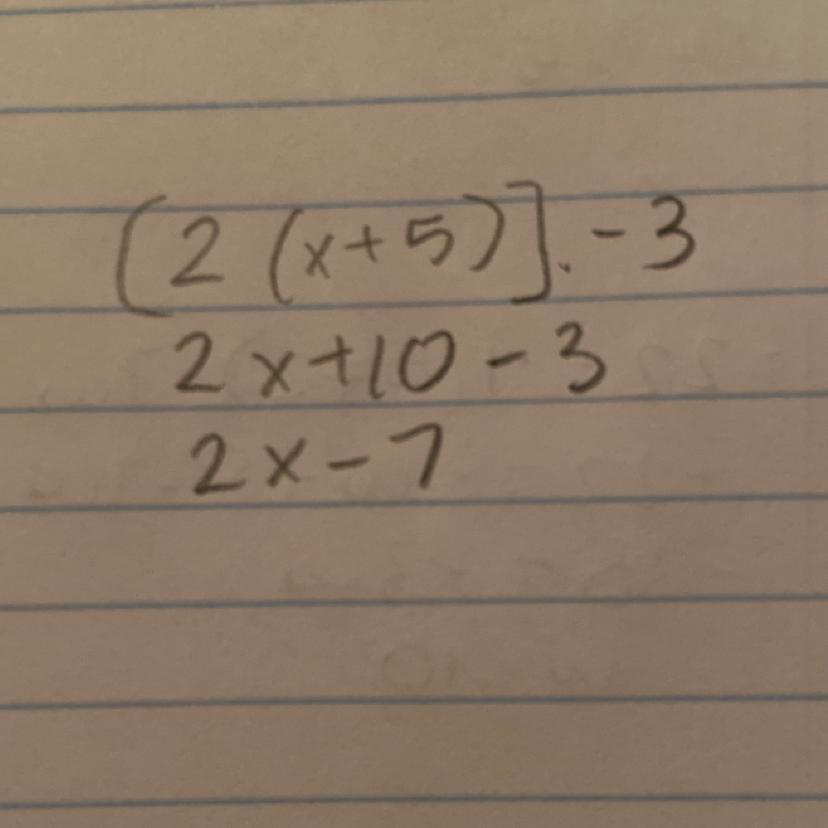 [2 (x+5)].-3
2x+10-3
2x-7